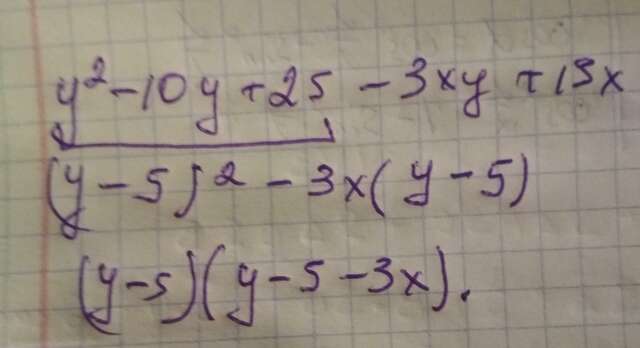 y² - 10y + 25 - 3xy + 15x
(y - 5)² - 3x(y - 5)
(y - 5)(y - 5 - 3x).